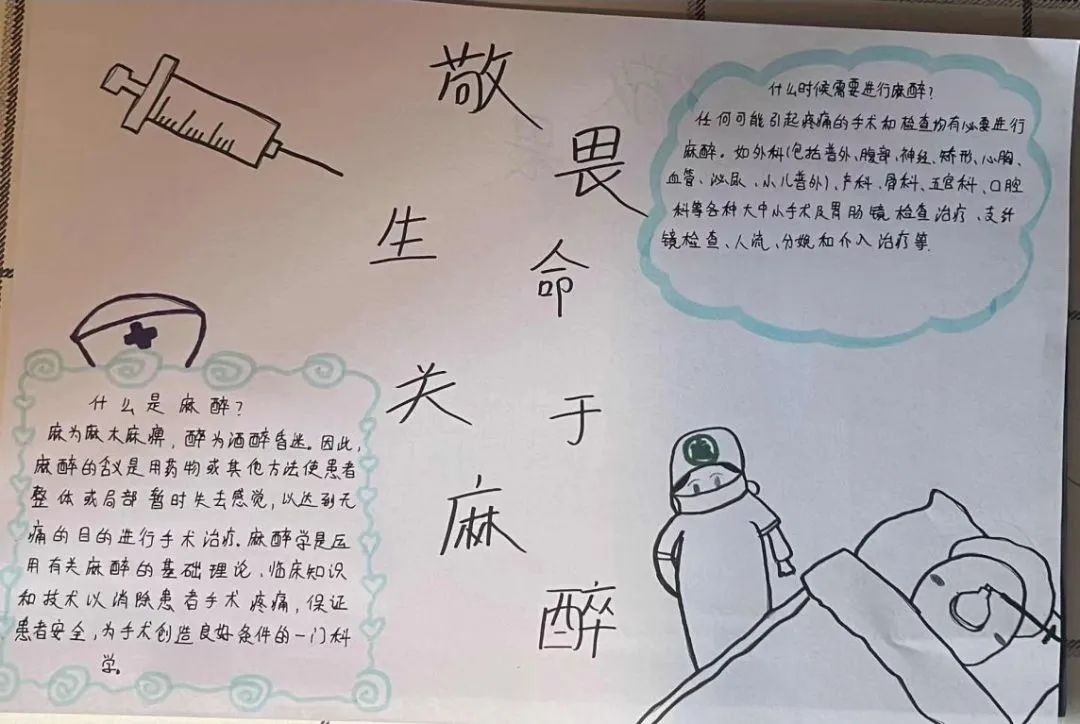 敬畏生命
关于麻醉
什么时候需要进行麻醉?
任何可能引起疼痛的手术和检查均有必要进行
麻醉。如外科(包括普外、腹部、神经、矫形、心胸、
血管、泌尿、小儿普外)、产科、骨科、五官科、口腔
科等各种大中小手术及胃肠镜检查治疗、支纤
镜检查、人流、分娩和介入治疗等.
什么是麻醉?
麻为麻木麻痹,醉为酒醉昏迷。因此,
麻醉的含义是用药物或其他方法使患者
整体或局部暂时失去感觉,以达到无
痛的目的进行手术治疗。麻醉学是运
用有关麻醉的基础理论、临床知识
和技术以消除患者手术疼痛,保证
患者安全,为手术创造良好条件的一门科
学。